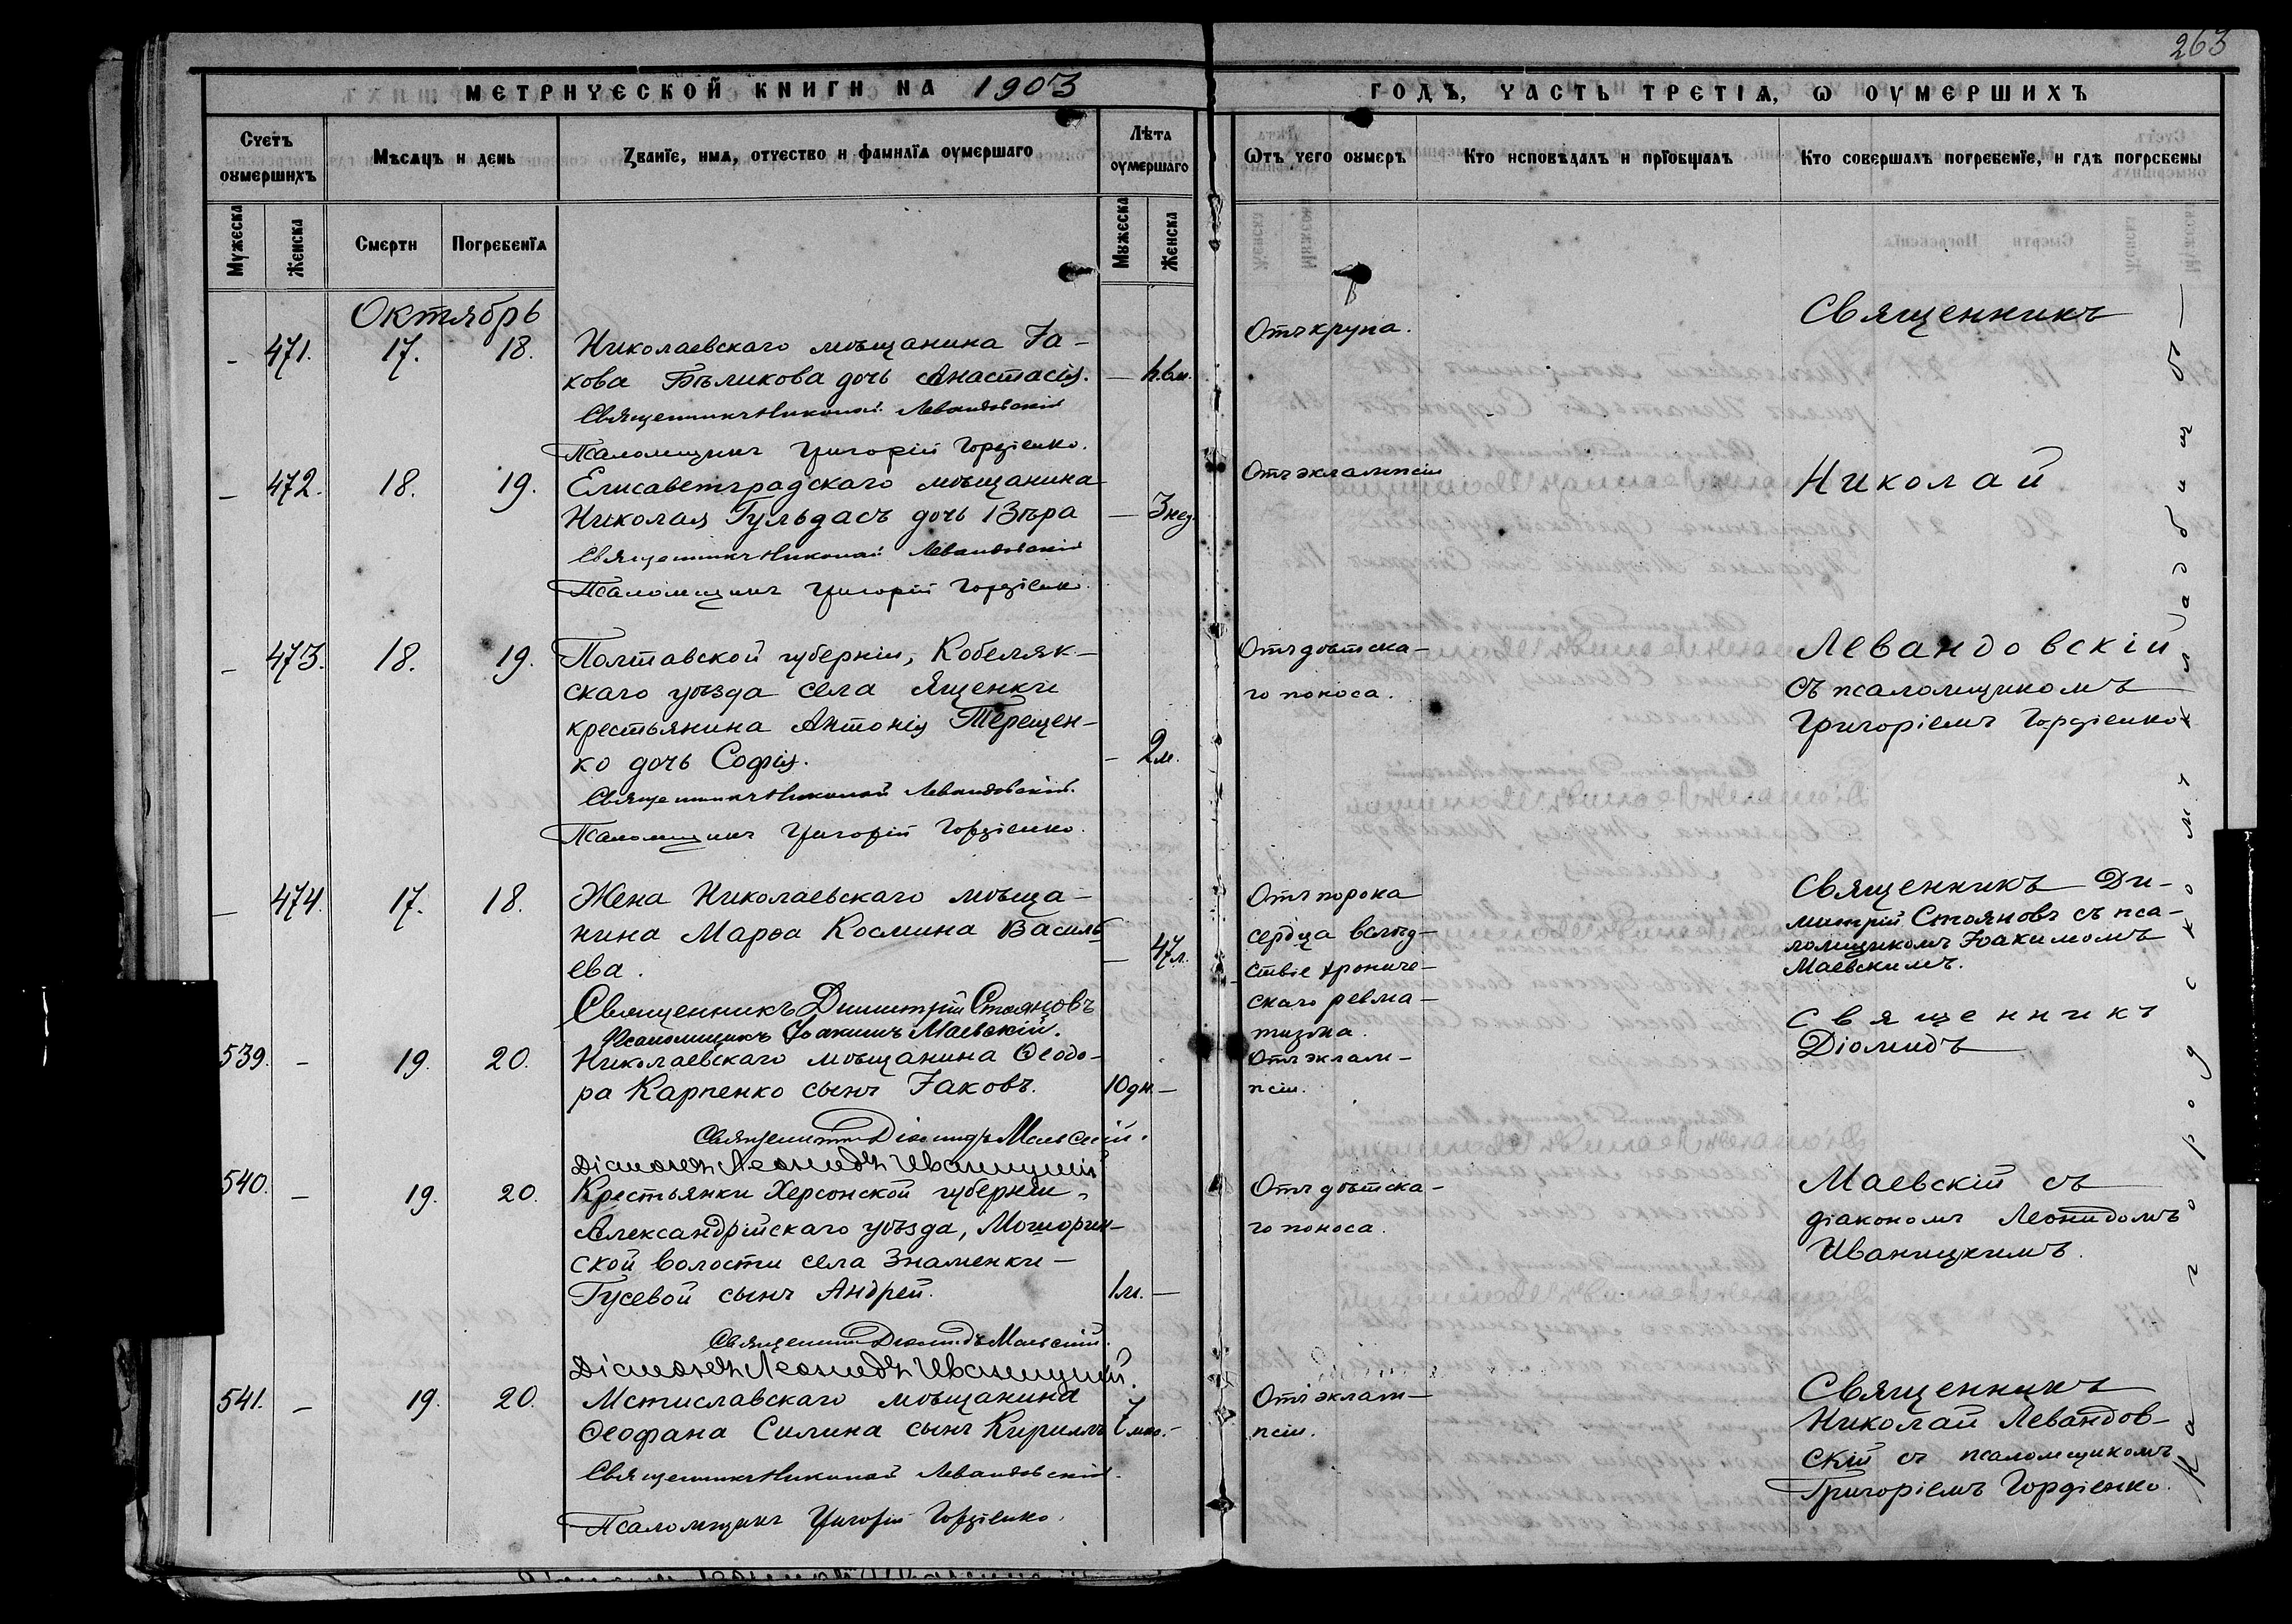 263
МЕТРИЧЕСКОЙ КНИГИ НА 1903 ГОДЪ, ЧАСТЬ ТРЕТІѦ, Ѡ ОУМЕРШИХЪ
Счетъ оумершихъ
Мѣсяцъ и день
Званїе, имѧ, отчество и фамилїа оумершаго
Лѣта оумершаго
Ѿтъ чего оумеръ
Кто исповѣдалъ и прїобщалъ
Кто совершалъ погребенїе, и гдѣ погребены
Мужеска
Женска
Смерти
Погребенїѧ
Мужеска
Женска
Октябрь
- 471. 17. 18.
Николаевскаго мѣщанина Іа-
кова Бѣликова дочь Анастасія. —
Священникъ Николай Левандовскій
Псаломщикъ Григорій Гордіенко.
Отъ крупа.
Священникъ
- 472. 18. 19.
Елисаветградскаго мѣщанина
Николая Гульдасъ дочь Вѣра — 3 нед.
Священникъ Николай Левандовскій
Псаломщикъ Григорій Гордіенко.
Отъ эклампсіи
Николай
- 473. 18. 19.
Полтавской губерніи, Кобеляк-
скаго уѣзда села Ященки
крестьянина Антонія Терещен-
ко дочь Софія. - 2 м.
Священникъ Николай Левандовскій.
Псаломщикъ Григорій Гордіенко.
Отъ дѣтска-
го поноса.
Левандовскій
съ псаломщикомъ
Григоріемъ Гордіенко
— 474. 17. 18.
Жена Николаевскаго мѣща-
нина Марѳа Космина Василь
ева. — 47 л.
Священникъ Димитрій Стояновъ
Псаломщикъ Іоакимъ Маевскій.
Отъ порока
сердца вслѣд-
ствіе хрониче-
скаго ревма-
тизма.
Священникъ Ди-
митрій Стояновъ съ пса-
ломщикомъ Іоакимомъ
Маевскимъ.
539. - 19. 20.
Николаевскаго мѣщанина Ѳеодо-
ра Карпенко сынъ Іаковъ. 10 дн. —
Священникъ Діомидъ Маевскій.
Діаконъ Леонидъ Иваницкій
Отъ эклам-
псіи.
Священникъ
Діомидъ
540. — 19. 20.
Крестьянки Херсонской губерніи,
Александрійскаго уѣзда, Мошорин-
ской волости села Знаменки —
Гусевой сынъ Андрей. 1 м. —
Священникъ Діомидъ Маевскій.
Діаконъ Леонидъ Иваницкій.
Отъ дѣтска-
го поноса.
Маевскій съ
діакономъ Леонидомъ
Иваницкимъ.
541. - 19. 20.
Мстиславскаго мѣщанина
Ѳеофана Силина сынъ Кириллъ 7 -
Священникъ Николай Левандовскій.
Псаломщикъ Григорій Гордіенко.
Отъ эклам-
псіи.
Священникъ
Николай Левандов-
скій съ псаломщикомъ
Григоріемъ Гордіенко.
На городскомъ кладбищѣ —